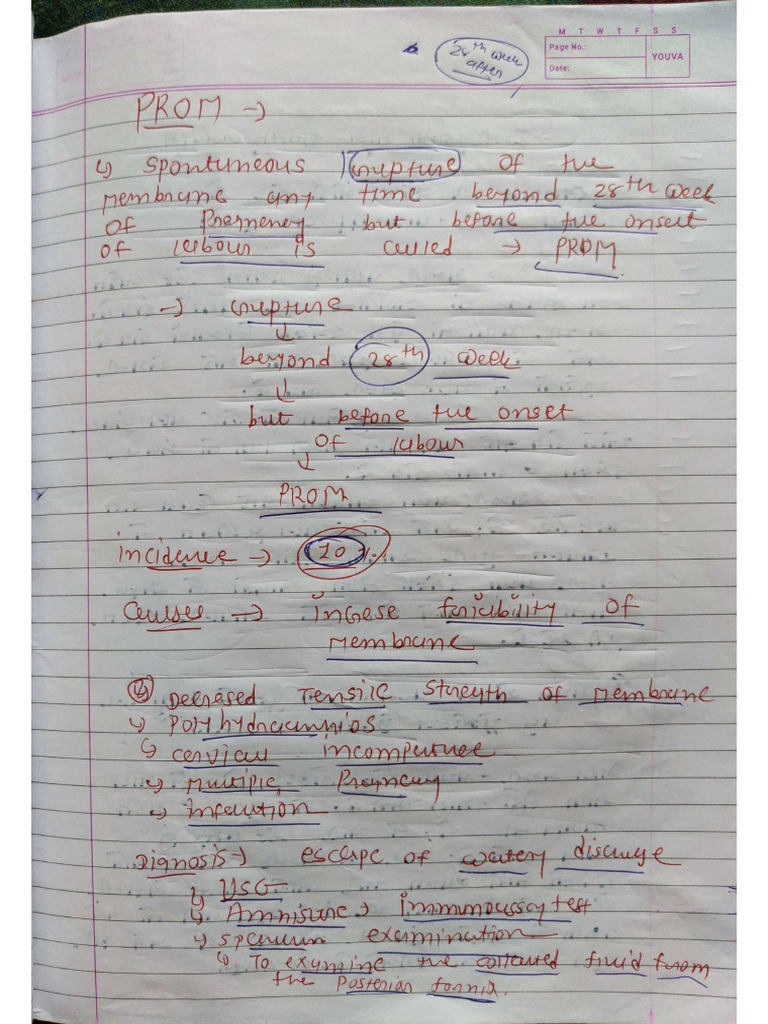 28th week
after
M T W T F S S
Page No.:
YOUVA
Date:
PROM →
↳ spontuneous rupture of the
membrane any time beyond 28th week
of Pregnency but before the onsert
of labour is called → PROM
→ rupture
↓
beyond 28th week
↓
but before the onset
of labour
↓
PROM
incidence → 10 %
Causes → ingese fericibility of
membrane
↳ Decresed Tensile strength of membrane
↳ Polyhydraunnios
↳ cervical incompetuce
↳ multiple Pregnency
↳ infecution
Dignosis → escape of watery discurge
↳ USG
↳ Amnisure → immunoussay test
↳ speculum examination
↳ To examine the collected fluid from
the Posterian fornix.